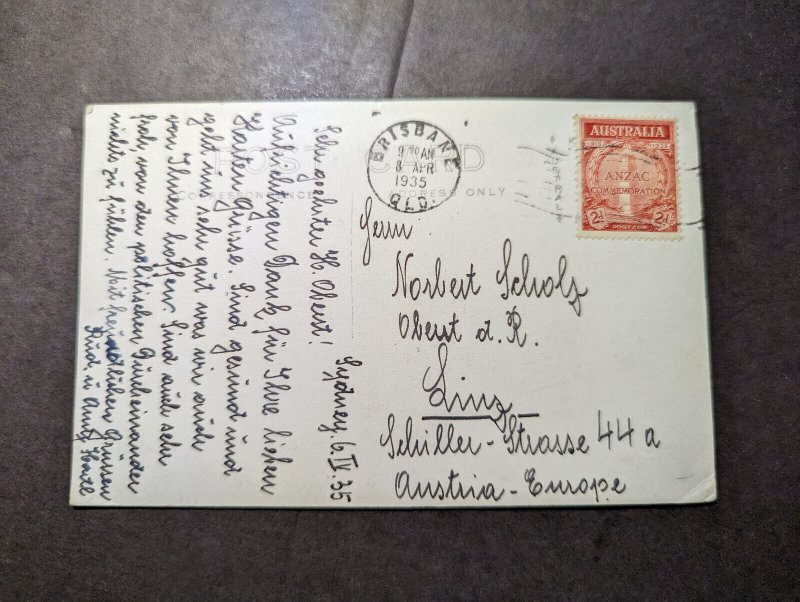 POST CARD
CORRESPONDENCE
ADDRESS ONLY
BRISBANE
9 30 AM
8 APR
1935
QLD.
AUSTRALIA
1915 1935
ANZAC
COMMEMORATION
2d 2d
POSTAGE
Herrn
Norbert Scholz
Oberst d. R.
Linz
Schiller-Strasse 44a
Austria-Europe
Sydney, 6.IV.35
Sehr geehrter H. Oberst!
Aufrichtigen Dank für Ihre lieben
Kartengrüsse. Sind gesund und
geht uns sehr gut was wir auch
von Ihnen hoffen. Sind auch sehr
froh, von den politischen Durcheinander
nichts zu fühlen. Mit freundlichen Grüssen
Rud u.